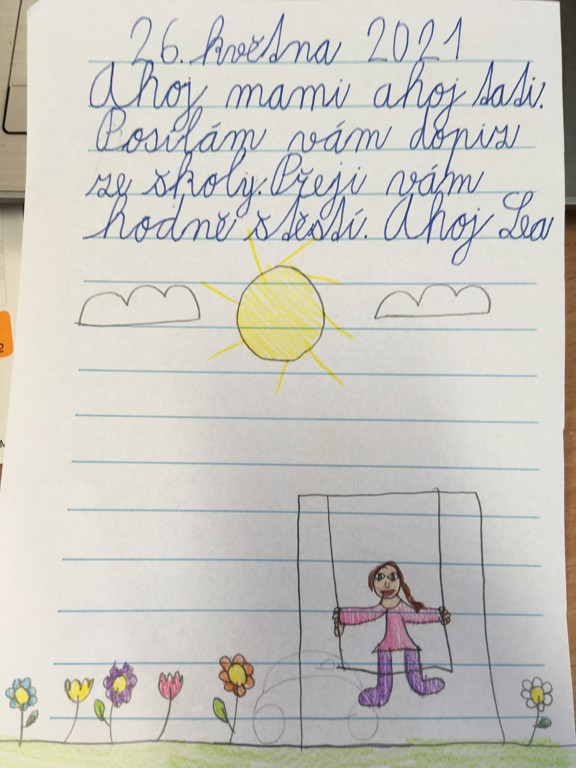 26. května 2021
Ahoj mami ahoj tati.
Posílám vám dopiz
ze školy. Přeji vám
hodně štěstí. Ahoj Lea